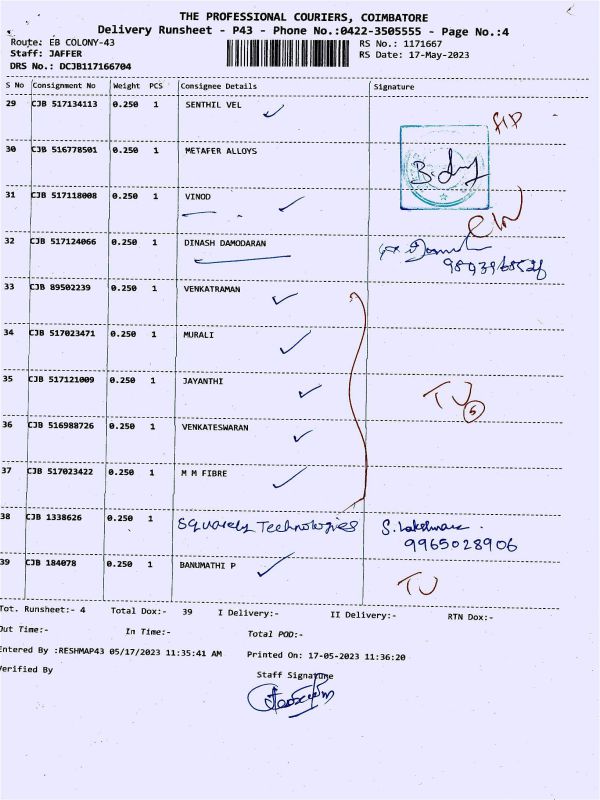 THE PROFESSIONAL COURIERS, COIMBATORE
Delivery Runsheet - P43 - Phone No.:0422-3505555 - Page No.:4
Route: EB COLONY-43 RS No.: 1171667
Staff: JAFFER RS Date: 17-May-2023
DRS No.: DCJB117166704
S No Consignment No Weight PCS Consignee Details Signature
29 CJB 517134113 0.250 1 SENTHIL VEL
30 CJB 516778501 0.250 1 METAFER ALLOYS
31 CJB 517118008 0.250 1 VINOD
32 CJB 517124066 0.250 1 DINASH DAMODARAN
33 CJB 89502239 0.250 1 VENKATRAMAN
34 CJB 517023471 0.250 1 MURALI
35 CJB 517121009 0.250 1 JAYANTHI TU 5
36 CJB 516988726 0.250 1 VENKATESWARAN
37 CJB 517023422 0.250 1 M M FIBRE
38 CJB 1338626 0.250 1 Squarely Technologies S. Lakshmana
9965028906
39 CJB 184078 0.250 1 BANUMATHI P TU
Tot. Runsheet:- 4 Total Dox:- 39 I Delivery:- II Delivery:- RTN Dox:-
Out Time:- In Time:- Total POD:-
Entered By :RESHMAP43 05/17/2023 11:35:41 AM Printed On: 17-05-2023 11:36:20
Verified By Staff Signature